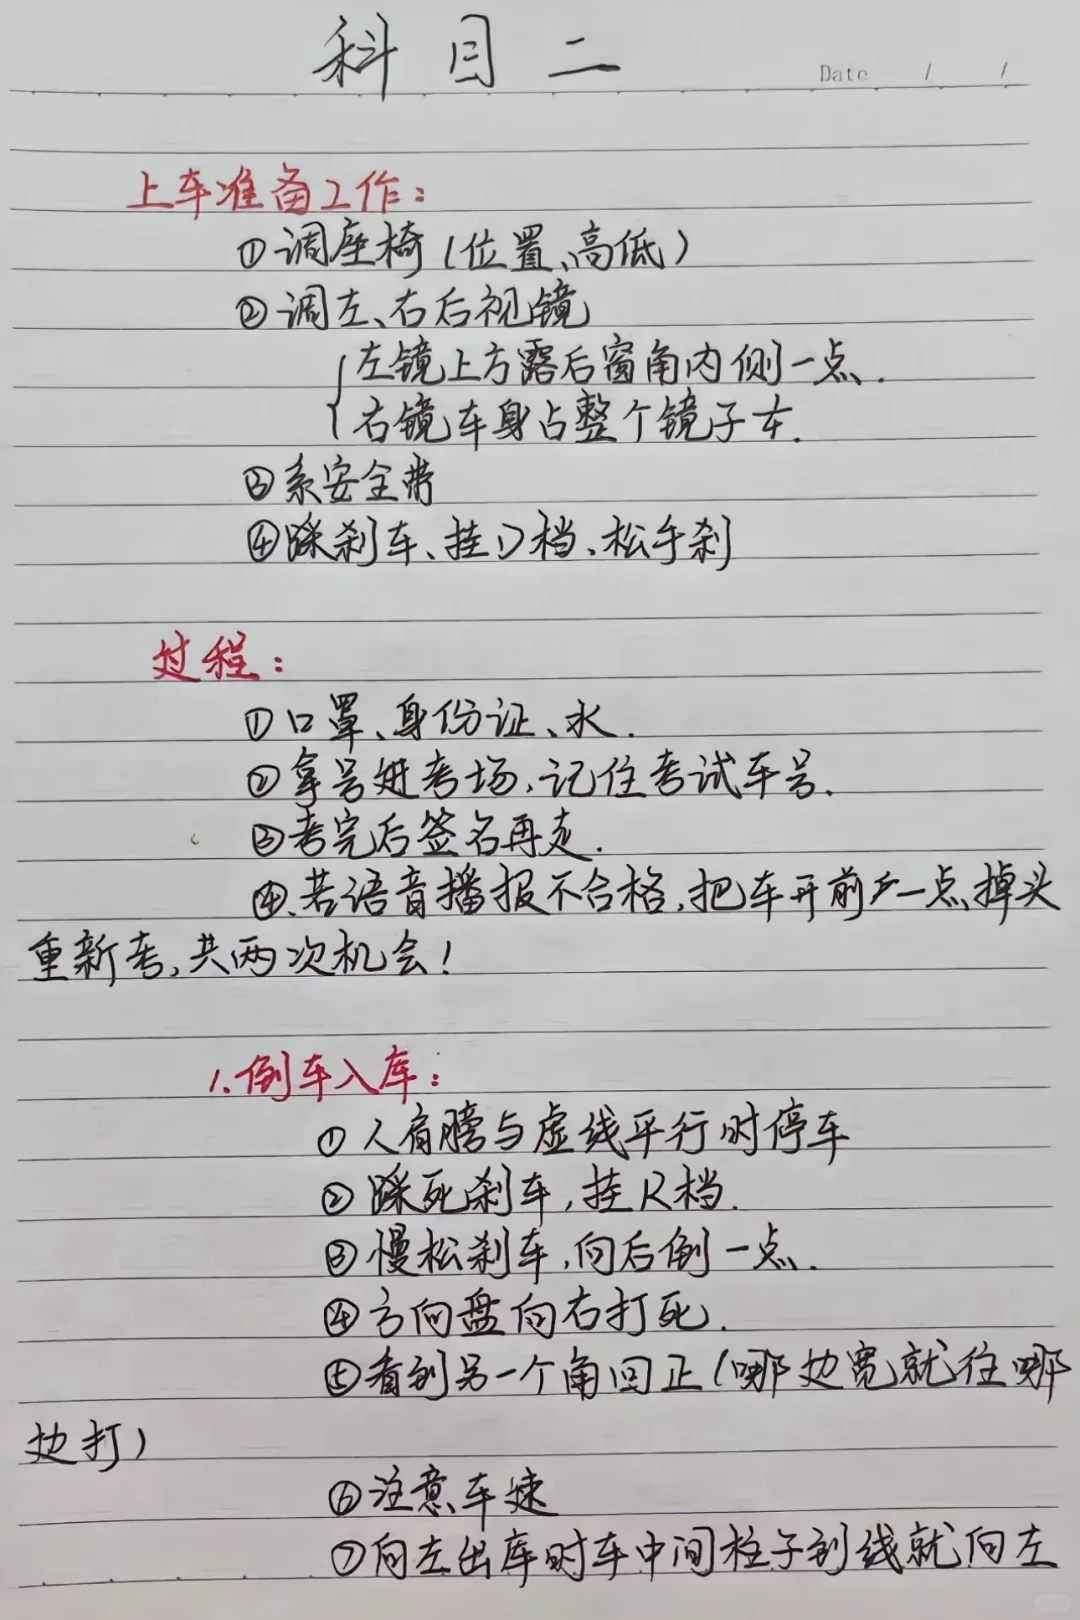 科目二
Date / /
上车准备工作:
①调座椅(位置、高低)
②调左、右后视镜
左镜上方露后窗角内侧一点.
右镜车身占整个镜子
③系安全带
④踩刹车、挂D档、松手刹
过程:
①口罩、身份证、水.
②拿号进考场,记住考试车号.
③考完后签名再走.
④、若语音播报不合格,把车开前一点、掉头
重新考,共两次机会!
1.倒车入库:
①人肩膀与虚线平行时停车
②踩死刹车,挂R档.
③慢松刹车,向后倒一点.
④方向盘向右打死.
⑤看到另一个角回正(哪边宽就往哪
边打)
⑥注意车速
⑦向左出库时车中间柱子到线就向左